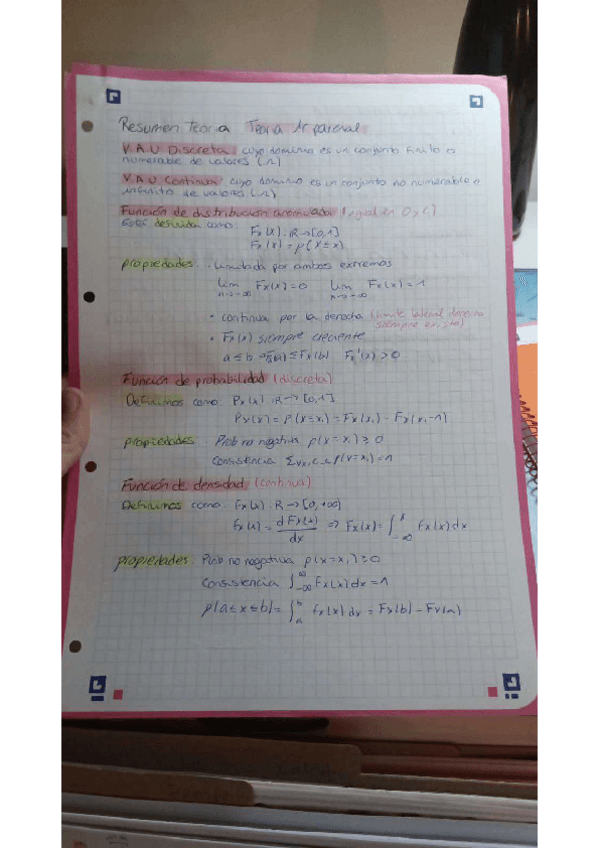 Resumen Teoria Teoria 1r parcial
V.A.U Discreta: cuyo dominio es un conjunto finito o
numerable de valores (Ω)
V.A.U Continua: cuyo dominio es un conjunto no numerable o
infinito de valores (Ω)
Función de distribución acomulada (igual en D y C)
Está definida como:
Fx(x): R→[0,1]
Fx(x) = p(X≤x)
propiedades: · Limitada por ambos extremos
lim n→-∞ Fx(x)=0 lim n→+∞ Fx(x)=1
· continua por la derecha (límite lateral derecho
siempre existe)
· Fx(x) siempre creciente
a≤b → Fx(a) ≤ Fx(b) Fx'(x) >0
Función de probabilidad (discreta)
Definimos como: Px(x): R→[0,1]
Px(x) = P(X=xi) = Fx(xi) - Fx(xi-1)
propiedades: Prob no negativa p(x=xi) ≥ 0
Consistencia Σ p(x=xi)=1
Función de densidad (continua)
Definimos como: Fx(x): R→[0,+∞)
fx(x) = dFx(x)/dx ⇒ Fx(x)= ∫_{-∞}^{x} fx(x)dx
propiedades: Prob no negativa p(x=xi) ≥0
Consistencia ∫_{-∞}^{∞} Fx(x)dx =1
p(a≤x≤b)= ∫_{a}^{b} fx(x)dx = Fx(b) - Fx(a)